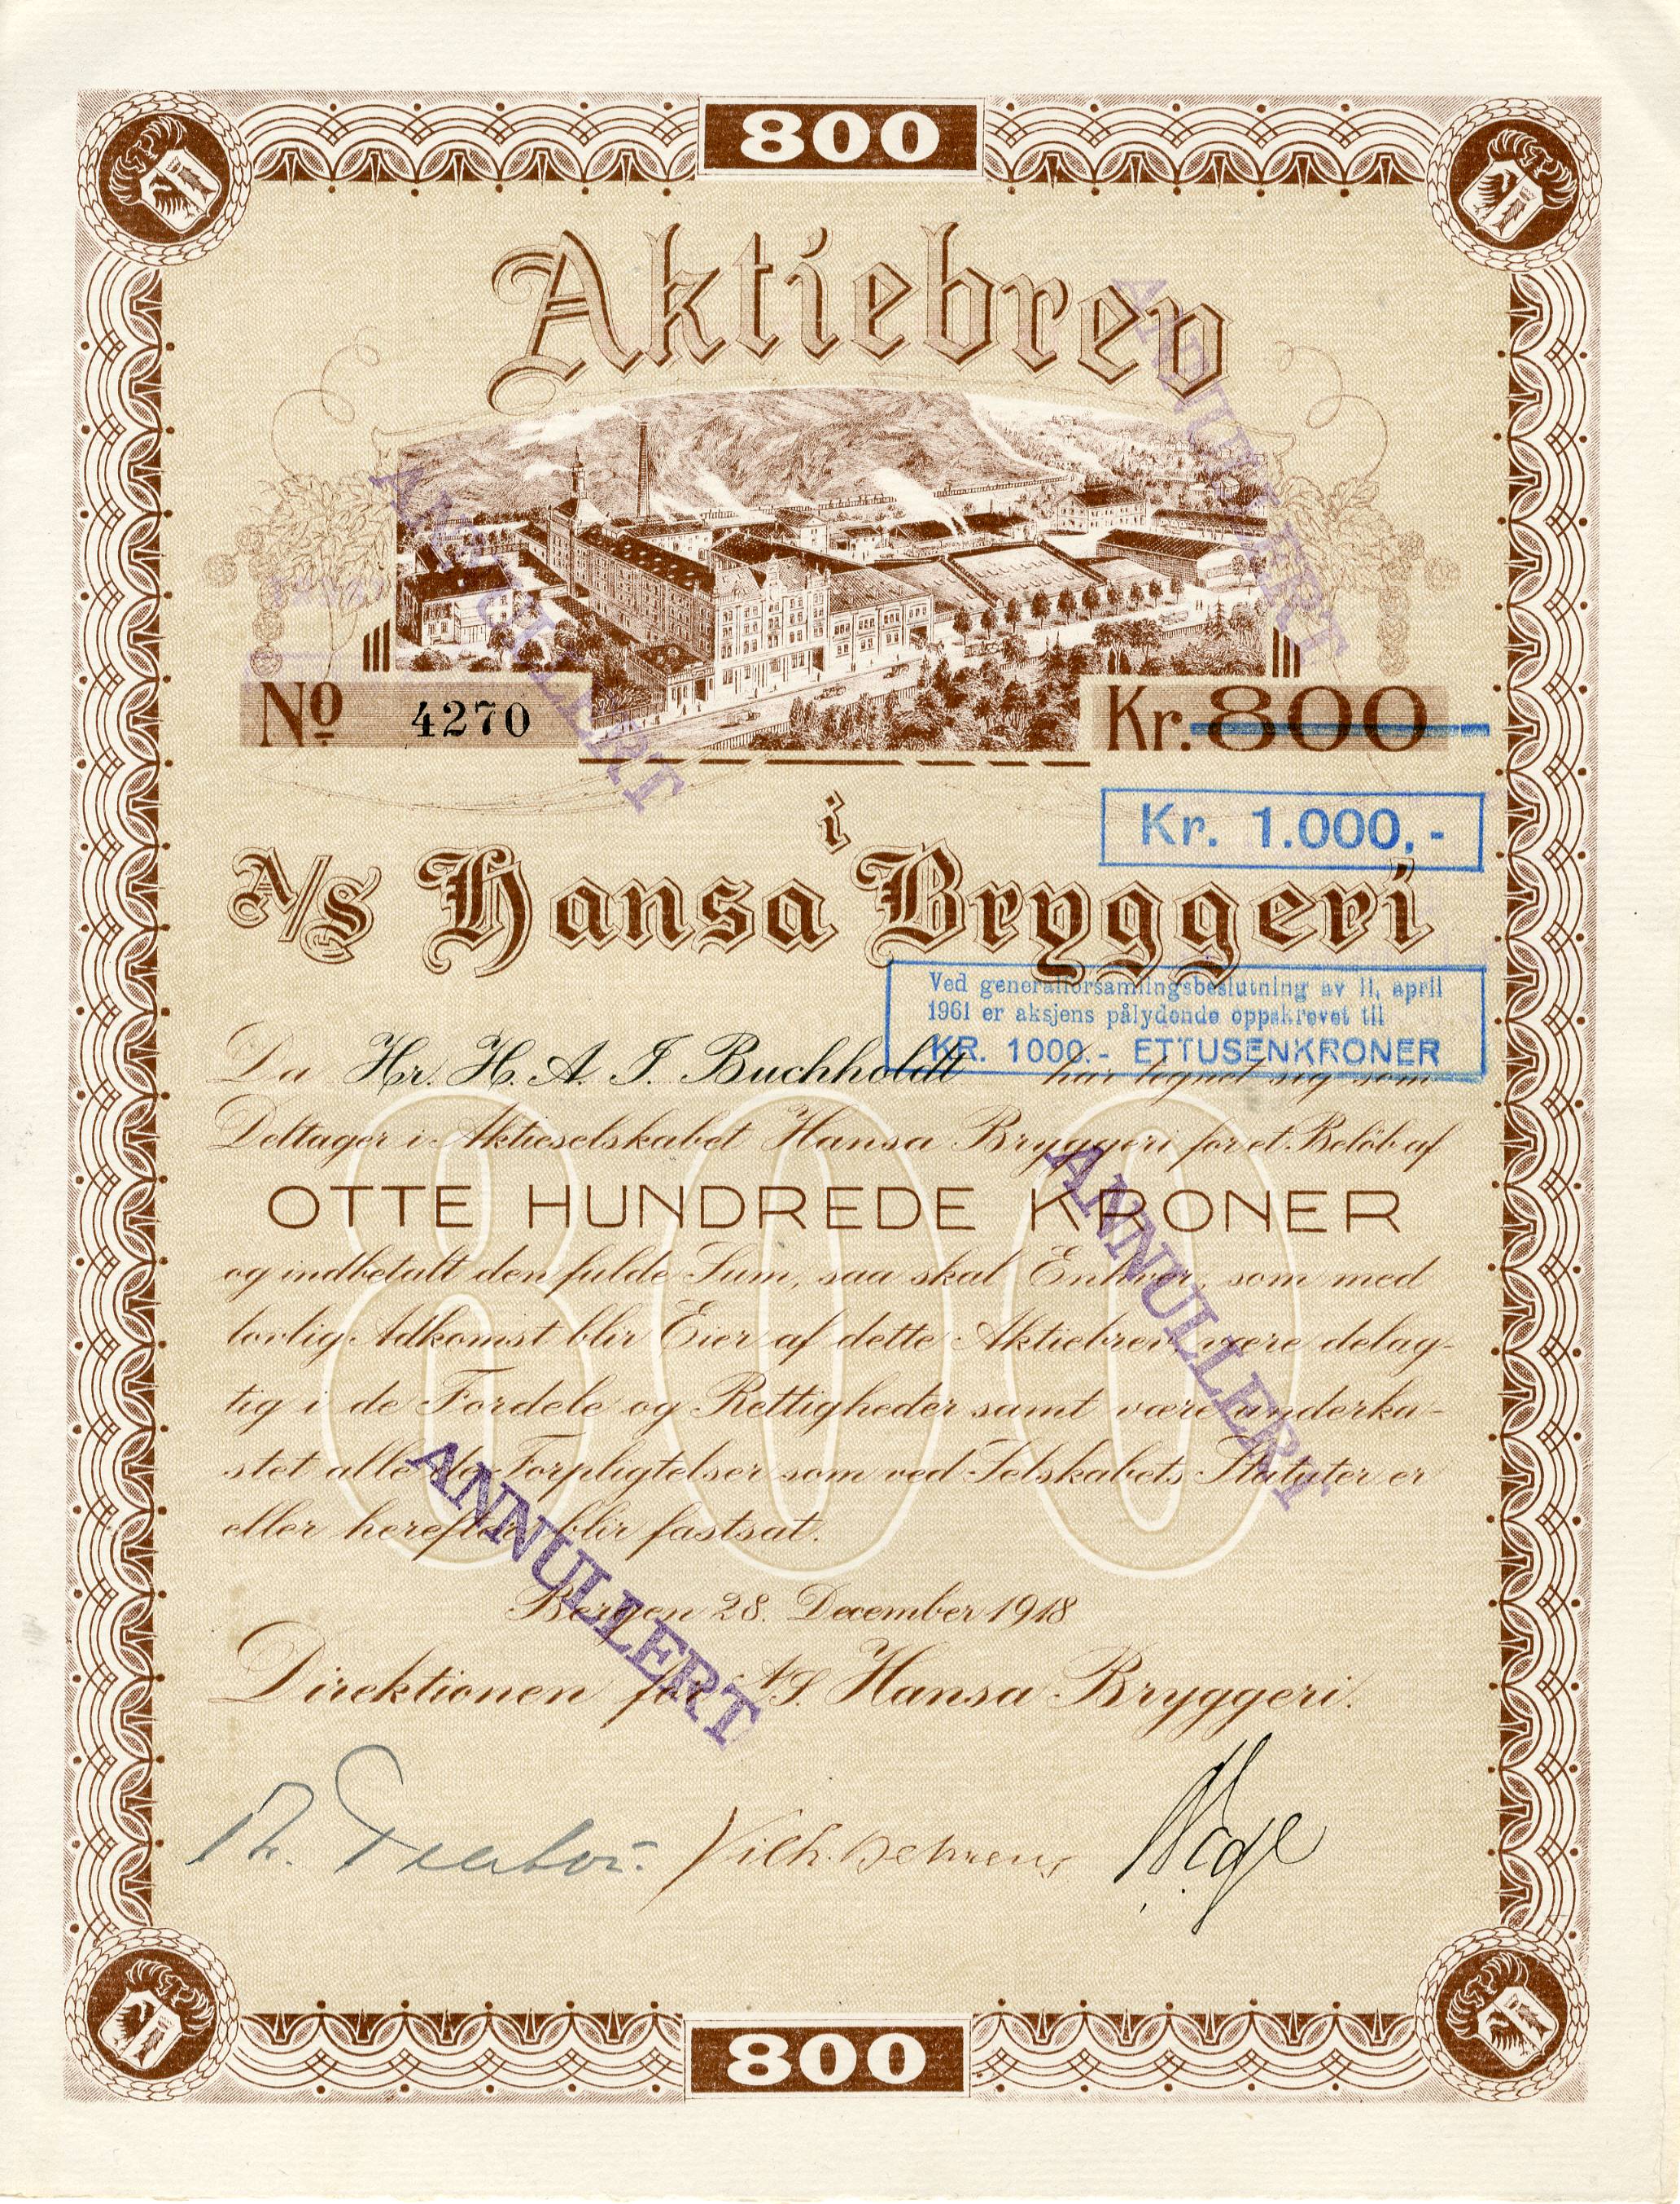 800
Aktiebrev
No 4270
Kr. 800
Kr. 1.000,-
i
A/S Hansa Bryggeri
Ved generalforsamlingsbeslutning av 11. april
1961 er aksjens pålydende oppskrevet til
KR. 1000.- ETTUSENKRONER
Da Hr. H. A. J. Buchholdt har tegnet sig som
Deltager i Aktieselskabet Hansa Bryggeri for et Beløb af
OTTE HUNDREDE KRONER
og indbetalt den fulde Sum, saa skal Enhver, som med
lovlig Adkomst blir Eier af dette Aktiebrev være delag-
tig i de Fordele og Rettigheder samt være underka-
stet alle de Forpligtelser som ved Selskabets Statuter er
eller herefter blir fastsat.
800
Bergen 28. December 1918
Direktionen for A/S. Hansa Bryggeri.
Vilh. Behrens
800
ANNULLERT
ANNULLERT
ANNULLERT
ANNULLERT